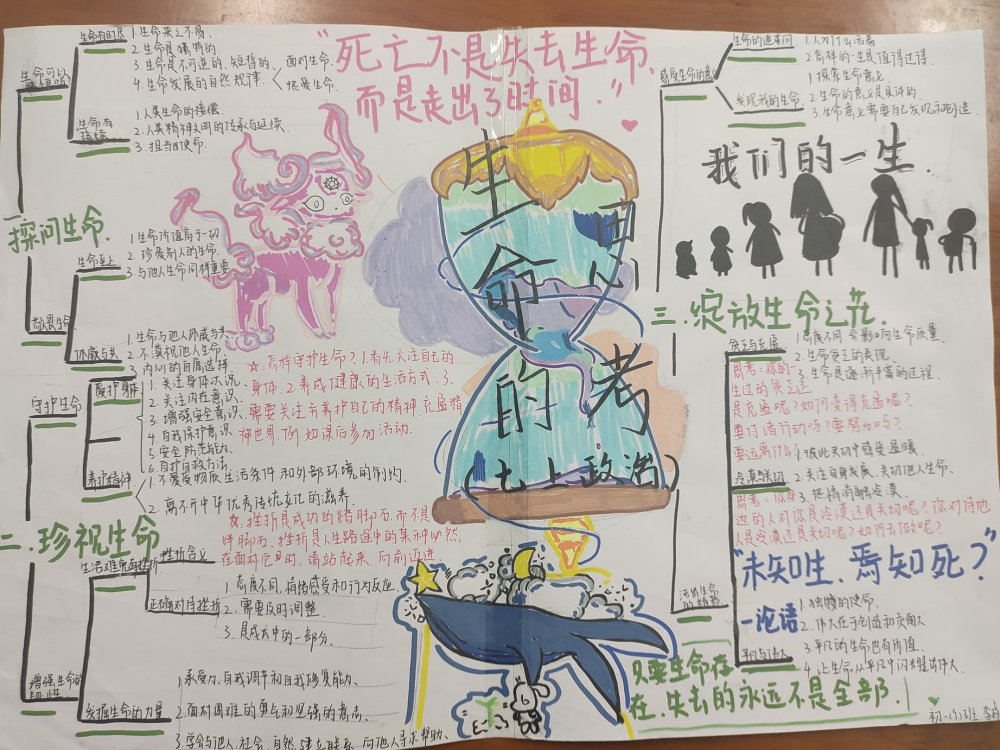 "死亡不是失去生命,
而是走出了时间."
生命的思考
(七上政治)
一探问生命.
生命有时尽
1.生命来之不易.
2.生命是独特的.
3.生命是不可逆的、短暂的、
4.生命发展的自然规律.
面对生命.
热爱生命.
生命有
接续
1.人类生命的接续.
2.人类精神文明的传承与延续.
3.担当的使命.
敬畏生命.
生命至上
1.生命价值高于一切
2.珍爱别人的生命.
3.与他人生命同样重要
休戚与共
1.生命与他人休戚与共
2.不漠视他人生命.
3.内心的自愿选择.
二.珍视生命
守护生命
爱护身体
1.关注身体状况.
2.关注内在意识.
3.增强安全意识.
4.自我保护意识
5.安全防范能力.
6.自护自救方法.
养护精神
1.不受爱物质生活条件和外部环境的制约
2.离不开中华优秀传统文化的滋养.
☆:怎样守护生命?1.首先关注自己的
身体.2.养成了健康的生活方式.3.
需要关注养护自己的精神,充盈精
神世界.例如课后参加活动.
☆:挫折是成功的踏脚石,而不是
绊脚石、挫折是人生路途中的某种必然,
在面对它且时.请站起来,向前迈进.
增强生命的
韧性
生活难免有挫折
挫折含义
正确对待挫折
1.态度不同,情绪感受和行为反应.
2.需要及时调整.
3.是成长中的一部分.
发掘生命的力量
1.承受力、自我调节和自我修复能力.
2.面对困难的勇气和坚强的意志.
3.学会与他人、社会、自然建立联系,向他人寻求帮助.
感受生命的意
生命的追单问
1.人为什么活着
2.怎样的一生是值得过得
发现我的生命
1.探索生命意义
2.生命的意义是具体的.
3.生命意义需要自己发现和创造.
我们的一生.
三.绽放生命之花
贫乏与充盈
1.态度不同,会影响生命质量
2.生命贫乏的表现.
3.生命是逐渐丰富的过程.
思考:你的一
生过的贫乏还
是充盈呢?如何变得充盈呢?
要付诸行动吗?要努力吗?
要远离什么?
冷漠与关切
1.彼此关切中感受温暖.
2.关注自身发展,关切他人生命.
3.把情消融冷漠.
思考:你身
边的人对你是冷漠还是关切呢?你对待他
人是冷漠还是关切呢?如何去做呢?
"未知生.焉知死?"
—论语
活出生命
的精彩
平凡与伟大
1.独特的使命.
2.伟大在于创造和贡献
3.平凡的生命也有价值
4.让生命从平凡中闪耀伟大.
只要生命存
在.失去的永远不是全部.!